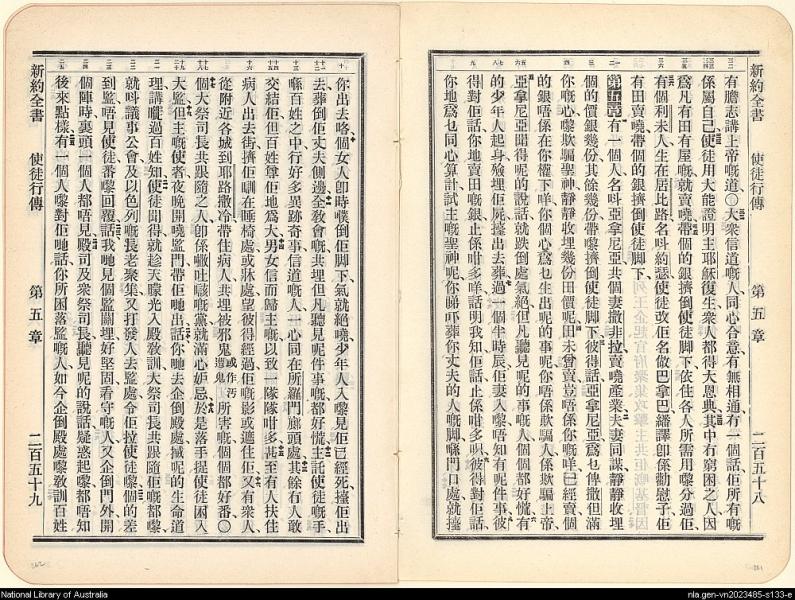 新約全書 使徒行傳 第五章 二百五十八
有膽志講上帝嘅道○大衆信道嘅人同心合意有無相通冇一個話佢所有嘅
係屬自己使徒用大能證明主耶穌復生衆人都得大恩典其中冇窮困之人因
爲凡有田有屋嘅就賣嘵帶個的銀擠倒使徒脚下依住各人所需用嚟分過佢
有個利未人生在居比路名呌約瑟使徒改佢名做巴拿巴繙譯卽係勸慰子佢
有田賣嘵帶個的銀擠倒使徒脚下
第五章有一個人名呌亞拿尼亞共個妻撒非拉賣嘵產業夫妻同謀靜靜收埋
個的價銀幾份其餘幾份帶嚟擠倒使徒脚下彼得話亞拿尼亞爲乜俾撒但滿
你嘅心嚟欺騙聖神靜靜收埋幾份田價呢田未曾賣豈唔係你嘅咩已經賣個
的銀唔係在你權下咩你個心爲乜生出呢的事呢你唔係欺騙人係欺騙上帝
亞拿尼亞聞得呢的說話就跌倒處氣絕但凡聽見呢的事嘅人個個都好慌有
的少年人起身殮埋佢屍擡出去葬過一個半時辰佢妻入嚟唔知有呢件事彼
得對佢話你地賣田嘅銀止係咁多咩話明我知佢話止係咁多唄彼得對佢話
你地爲乜同心算計試主嘅聖神呢你睇吓葬你丈夫的人嘅脚嚹門口處就擡
你出去咯個女人卽時噗倒佢脚下氣就絕嘵少年人入嚟見佢已經死擡佢出
去葬倒佢丈夫側邊全敎會嘅共埋但凡聽見呢件事嘅都好慌主託使徒嘅手
嚹百姓之中行好多異跡奇事信道嘅人一心同在所羅門廊頭處其餘冇人敢
交結佢但百姓尊佢地爲大男女信而歸主嘅以致一隊隊咁多甚至有人扶住
病人出去街擠佢瞓在睡椅處或牀處望彼得經過佢嘅影或遮住佢又有衆人
從附近各城到耶路撒冷帶住病人共埋被邪鬼或作污遭鬼所害嘅個個都好番○
個大祭司長共跟隨之人卽係嘅黨就滿心妬忌於是落手捉使徒困入
大監但主嘅使者夜晚開嘵監門帶佢哋出話你哋去企倒殿處搣呢的生命道
理講嚨過百姓知使徒聞得就趁天矇光入殿敎訓大祭司長共跟隨佢嘅都嚟
就呌議事公會及以色列嘅長老聚集又打發人去監處令佢拉使徒嚟個的差
到監唔見使徒番嚟回覆話我哋見個監關埋好堅固看守嘅人又企倒門外開
個陣時裏頭一個人都唔見殿司及衆祭司長聽見呢的說話疑惑起嚟都唔知
後來點樣有一個人嚟對佢哋話你所困落監嘅人如今企倒殿處嚟敎訓百姓
新約全書 使徒行傳 第五章 二百五十九
National Library of Australia
nla.gen-vn2023485-s133-e